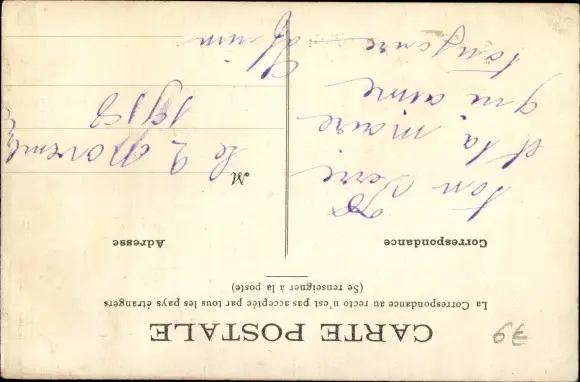 CARTE POSTALE
La Correspondance au recto n'est pas acceptée par tous les pays étrangers
(Se renseigner à la poste)
Correspondance
Adresse
ton
et ta maire
qui aime
toujours
M
le 2 novembre
1913